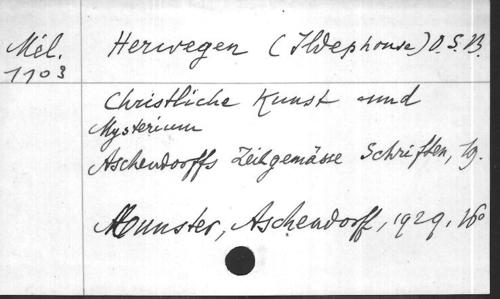 Mél. Herwegen (Ildephonse) O.S.B.
1103
Christliche Kunst und
Mysterium
Aschendorffs Zeitgemässe Schriften, 19.
Munster, Aschendorff, 1929, 16°